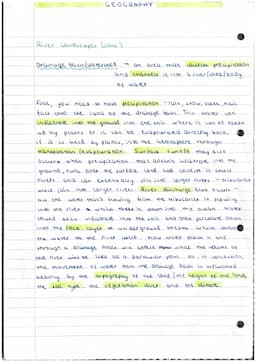 GEOGRAPHY
River Landscapes (cont.)
Drainage basin/watershed - an area that collects precipitation
and channels it into a river/lake/body
of water
First, you need to have precipitation - rain, snow, hail
falls onto the land of the drainage basin. This water can
infiltrate into the ground into the soil where it can be taken
up by plants or it can be evaporated directly back,
it is used by plants, into the atmosphere through
transpiration/evaporation. Surface runoff may also
occur when precipitation that doesn't infiltrate into the
ground, runs over the surface land and collects in small
rivers and can eventually join into larger rivers - tributaries
which join into larger rivers. River discharge also
are the water that's flowing from the tributaries is flowing
into the river & which there is down into the ocean. Water
could also infiltrate into the soil and then percolate down
into the rock layer or underground stream which
the water to the river
through a drainage basin will affect what the volume of
the river will be like at a particular point. So, in conclusion,
the movement of water from the drainage basin is influenced
heavily by the topography of the land/the height of the land,
the soil type, the vegetation cover and the climate.